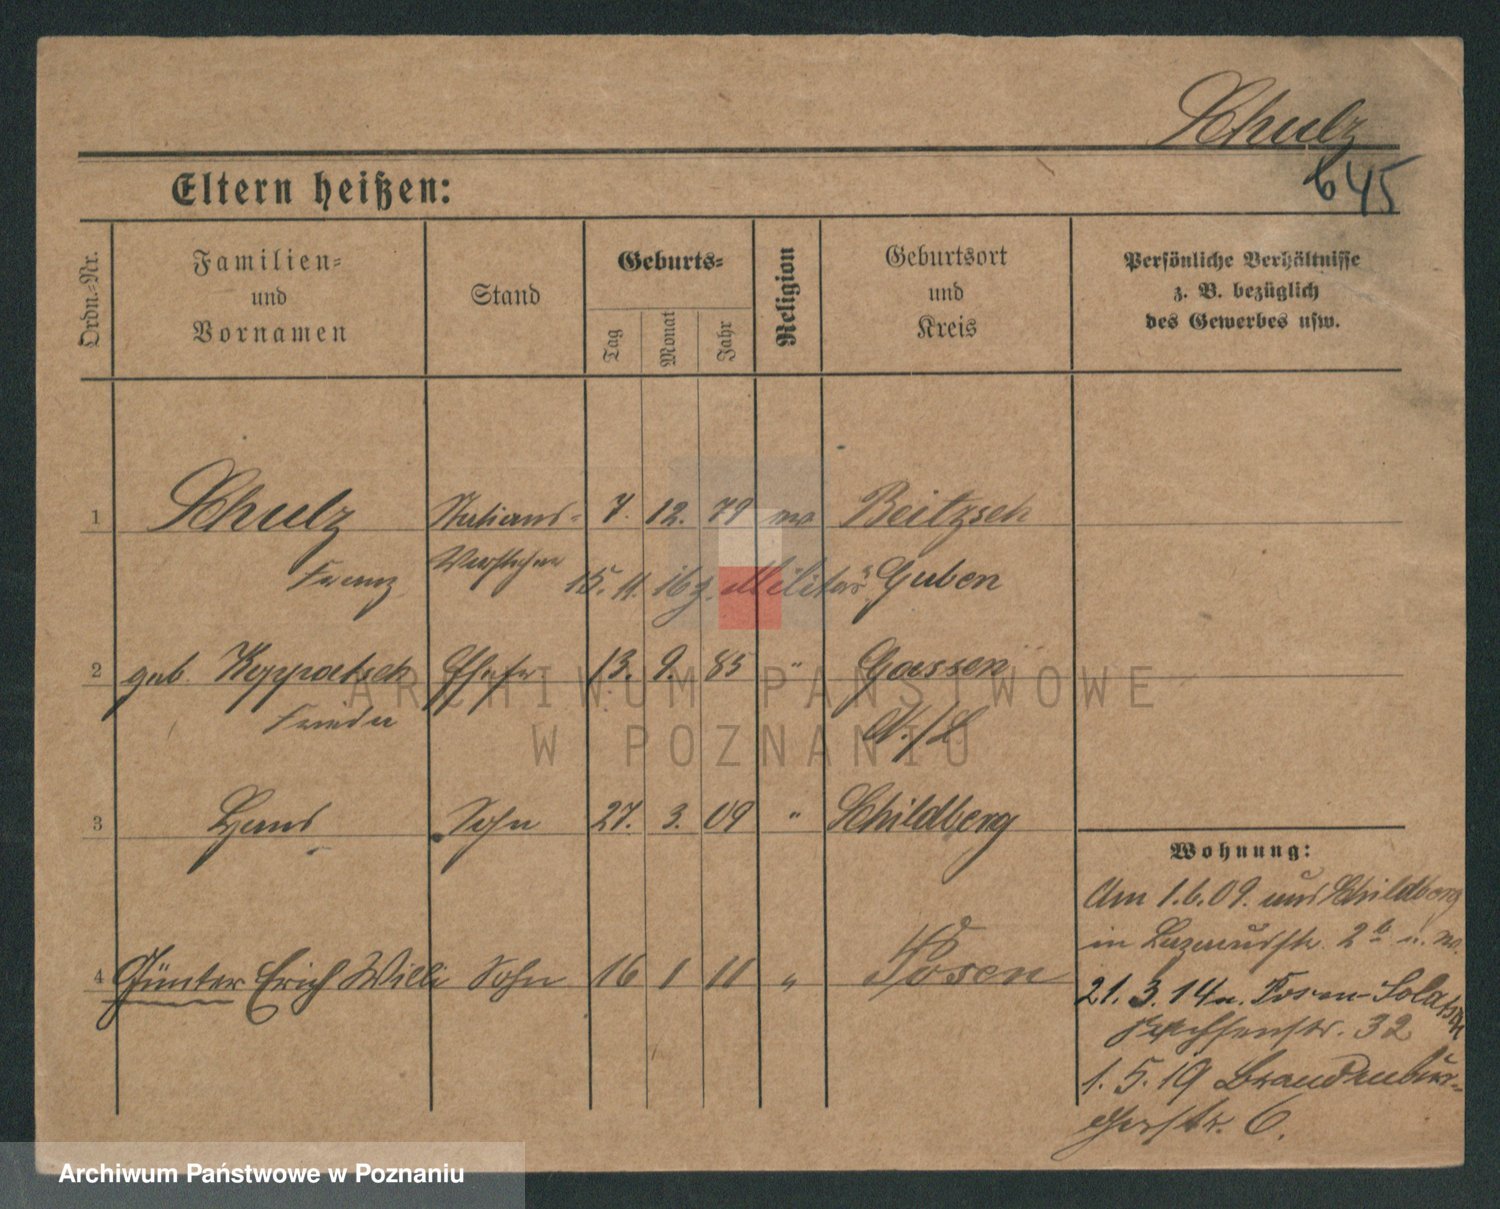 Schulz
645
Eltern heißen:
Ordn.-Nr.
Familien-
und
Vornamen
Stand
Geburts-
Tag
Monat
Jahr
Religion
Geburtsort
und
Kreis
Persönliche Verhältnisse
z. B. bezüglich
des Gewerbes usw.
1 Schulz 7. 12. 79 Beitzsch
Franz Vorsteher 15. 11. 16 z. Militär Guben
2 geb Koppatsch Ehefr 13. 9. 85 " Gassen
Frieda N./L
3 Hans Sohn 27. 3. 09 " Schildberg
Wohnung:
Am 1.6.09. aus Schildberg
in 2
4 Günter Erich Willi Sohn 16 1 11 " Posen
21. 3. 14 n. Posen-Solatsch
32
1. 5. 19 Brandenbur-
gerstr. 6.
ARCHIWUM PAŃSTWOWE
W POZNANIU
Archiwum Państwowe w Poznaniu